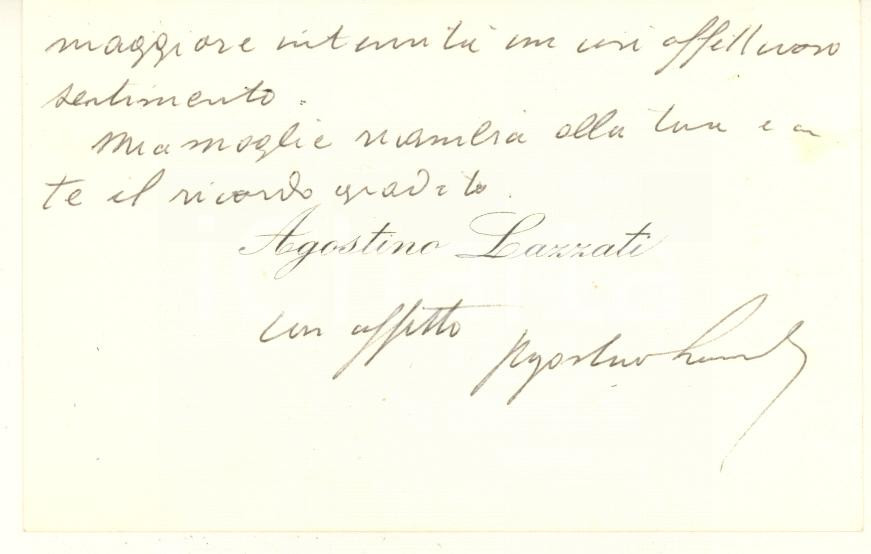 maggiore intensità un così affettuoso
sentimento.
Mia moglie ricambia alla tua e a
te il ricordo gradito.
Agostino Lazzati
con affetto
Agostino Lazzati